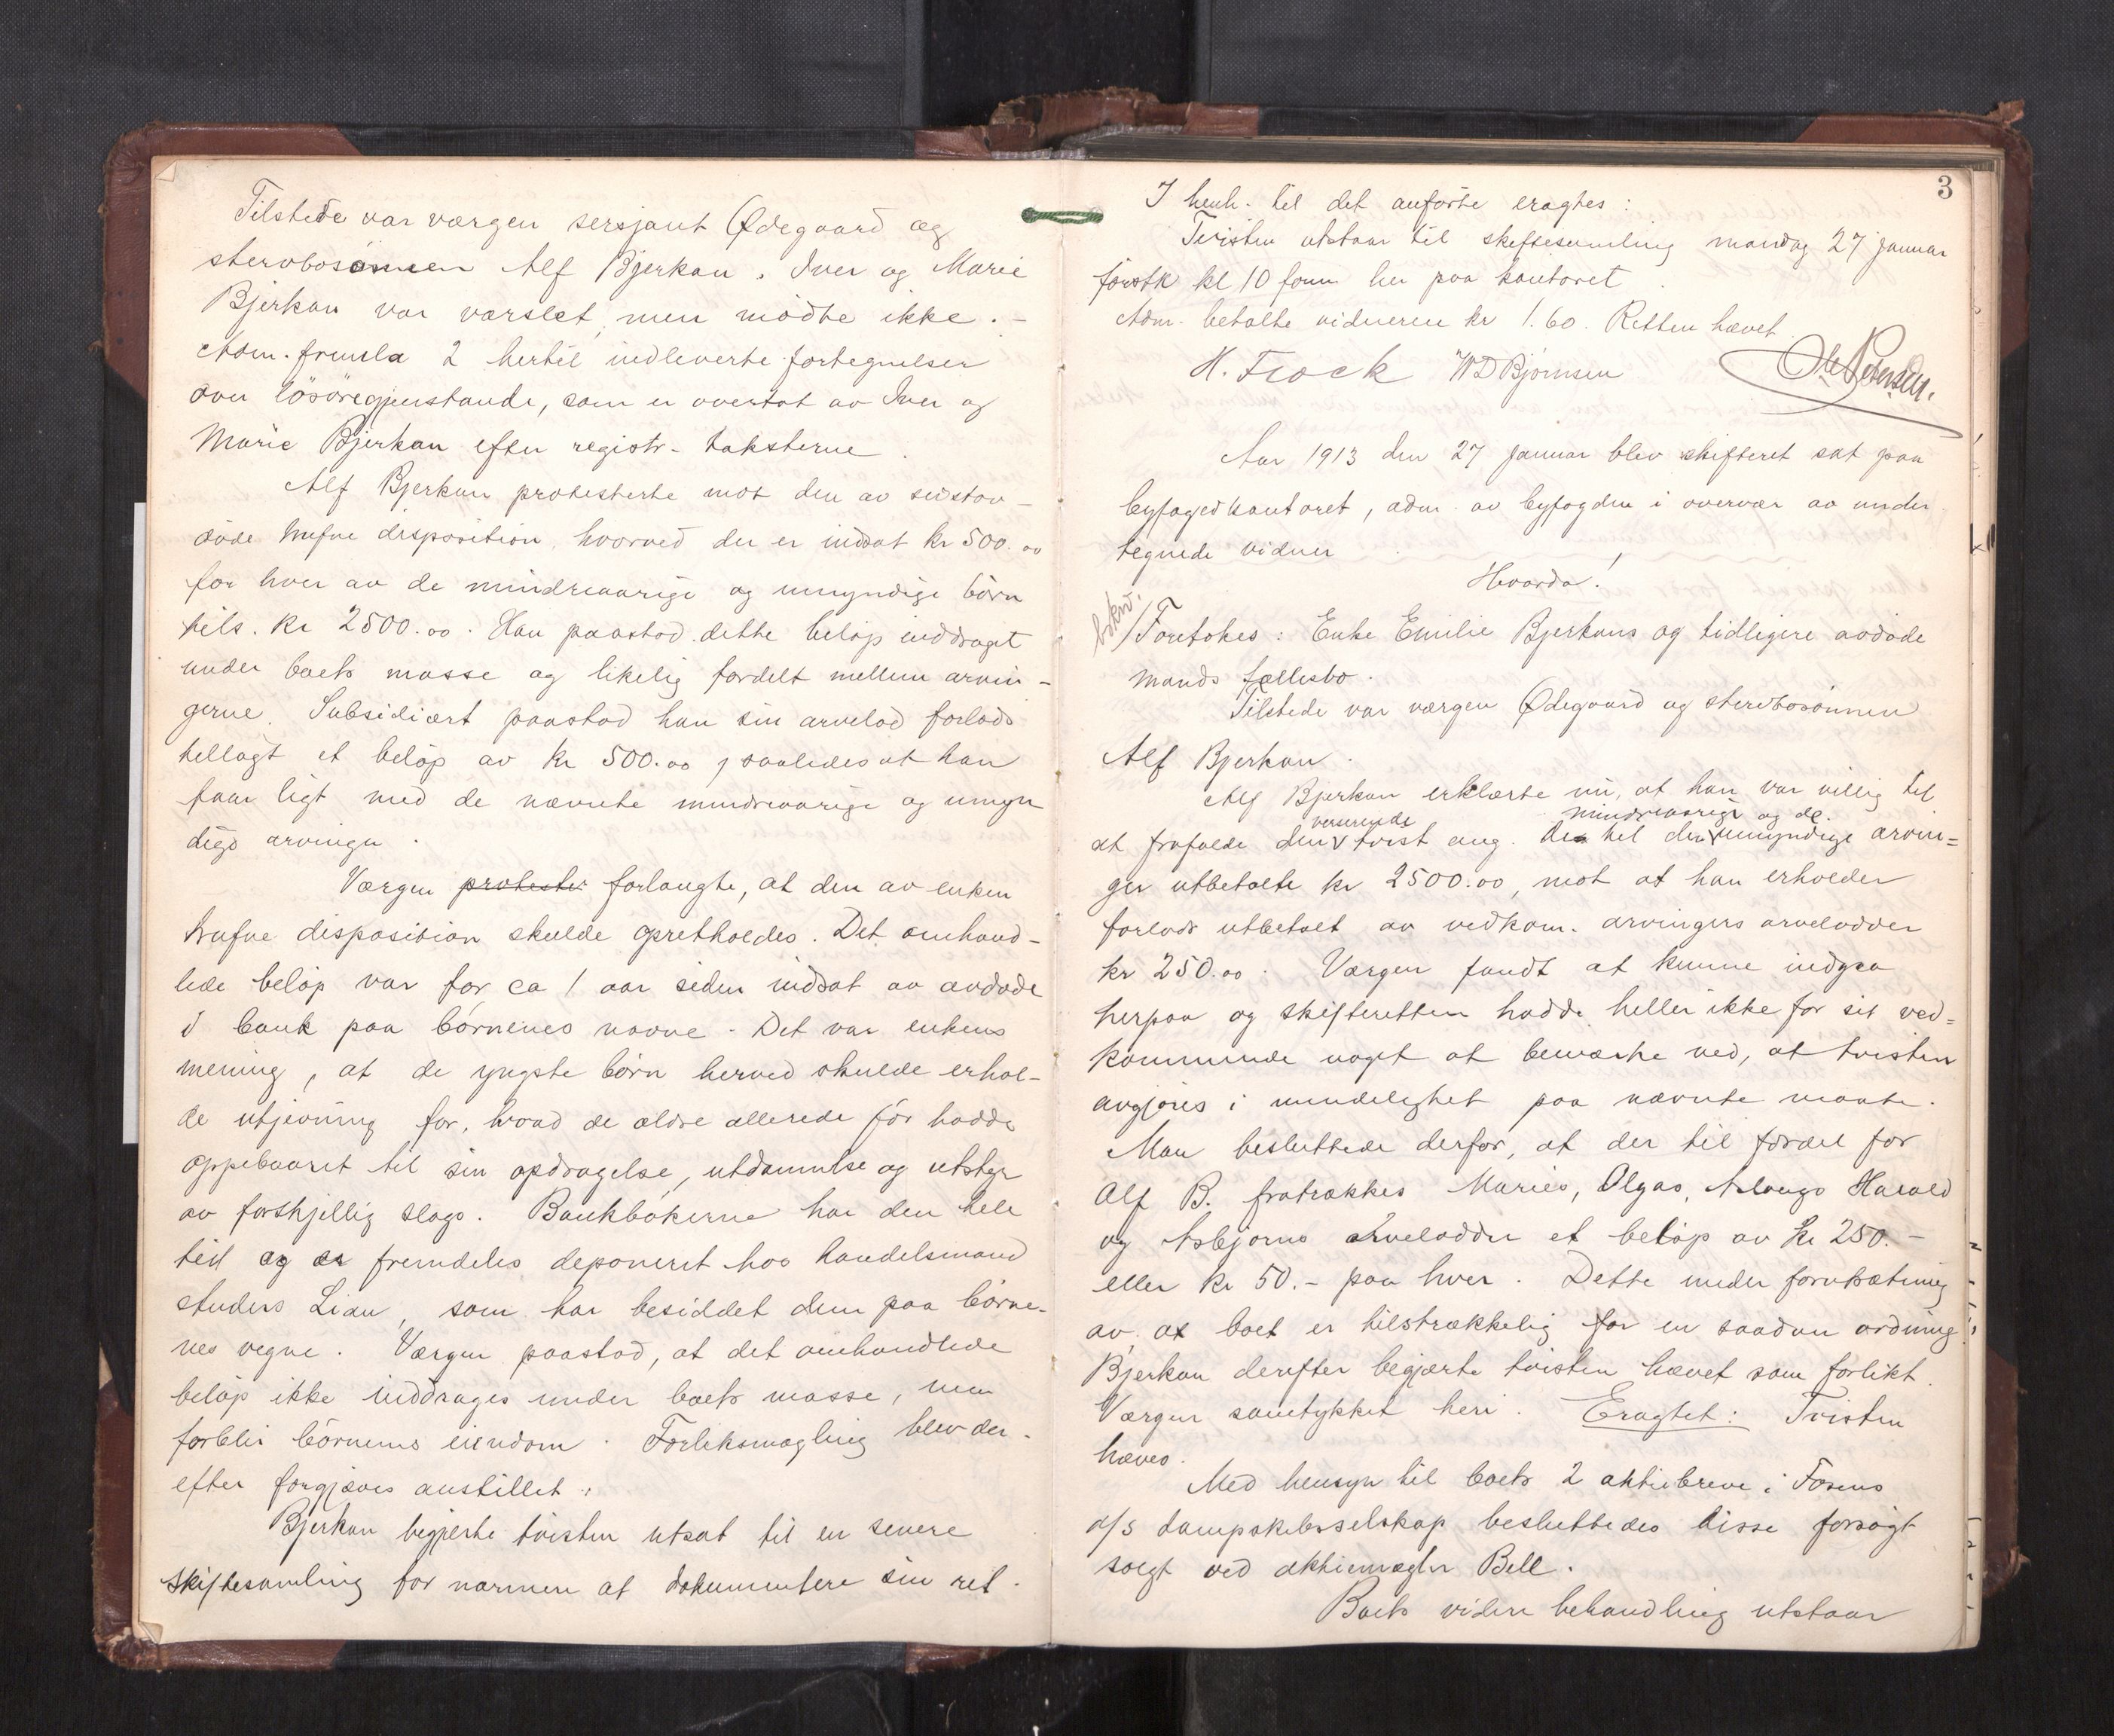 Tilstede var værgen sersjant Ødegaard og
stervbosönnen Alf Bjerkan. Iver og Marie
Bjerkan var varslet, men mödte ikke. -
Adm. fremla 2 hertil indleverte fortegnelser
over lösöregjenstande, som er overtat av Iver og
Marie Bjerkan efter registr. taksterne.
Alf Bjerkan protesterte mot den av sidstav-
döde trufne disposition, hvorved der er indsat kr 500.00
for hver av de mindreaarige og umyndige börn
tils. kr 2500.00. Han paastod dette belöp inddraget
under boets masse og likelig fordelt mellem arvin-
gerne. Subsidiært paastod han sin arvelod forlods
tillagt et belöp av kr 500.00, saaledes at han
faar ligt med de nævnte mindreaarige og umyn
dige arvinger.
Værgen protester forlangte, at den av enken
trufne disposition skulde opretholdes. Det omhand-
lede belöp var for ca 1 aar siden indsat av avdöde
i bank paa börnenes navne. Det var enkens
mening, at de yngste börn herved skulde erhol-
de utjevning for, hvad de ældre allerede för hadde
oppebaaret til sin opdragelse, utdannelse og utstyr
av forskjellig slags. Bankbökerne har den hele
tid og er fremdeles deponert hos handelsmand
Anders Lian, som har besiddet dem paa börne-
nes vegne. Værgen paastod, at det omhandlede
belöp ikke inddrages under boets masse, men
forblir börnenes eiendom. Forliksmægling blev der-
efter forgjæves anstillet.
Bjerkan begjerte tvisten utsat til en senere
skiftesamling for nærmere at dokumentere sin ret.
3
I henh. til det anförte eragtes:
Tvisten utstaar til skiftesamling mandag 27 januar
förstk kl 10 form her paa kontoret.
Adm. betalte vidnerne kr 1.60. Retten hævet.
H. Frock WD Bjørnsen Ole Petersen.
Aar 1913 den 27 januar blev skifteret sat paa
byfogedkontoret, adm. av byfogden i overvær av under
tegnede vidner
Hvorda!
1/ Foretokes: Enke Emilie Bjerkans og tidligere avdöde
mands fællesbo.
Tilstede var værgen Ødegaard og stervbosönnen
Alf Bjerkan.
Alf Bjerkan erklærte nu, at han var villig til
verserende mindreaarige og de.
at frafalde den v tvist ang. de til den v umyndige arvin=
ger utbetalte kr 2500.00, mot at han erholder
forlods utbetalt av vedkom. arvingers arvelodder
kr 250.00. Værgen fandt at kunne indgaa
herpaa og skifteretten hadde heller ikke for sit ved=
kommende noget at bemærke ved, at tvisten
avgjöres i mindelighet paa nævnte maate.
Man besluttede derfor, at der til fordel for
Alf B. fratrækkes Maries, Olgas, Aslaugs Harald
og Asbjörns arvelodder et belöp av kr 250.-
eller kr 50.- paa hver. Dette under forutsætning
av at boet er tilstrækkelig for en saadan ordning.
Bjerkan derefter begjærte tvisten hævet som forlikt.
Værgen samtykket heri. Eragtet: Tvisten
hæves.
Med hensyn til boets 2 aktiebreve i Fosens
a/s dampskibsselskap besluttedes disse forsögt
solgt ved aktiemægler Bell.
Boets videre behandling utstaar